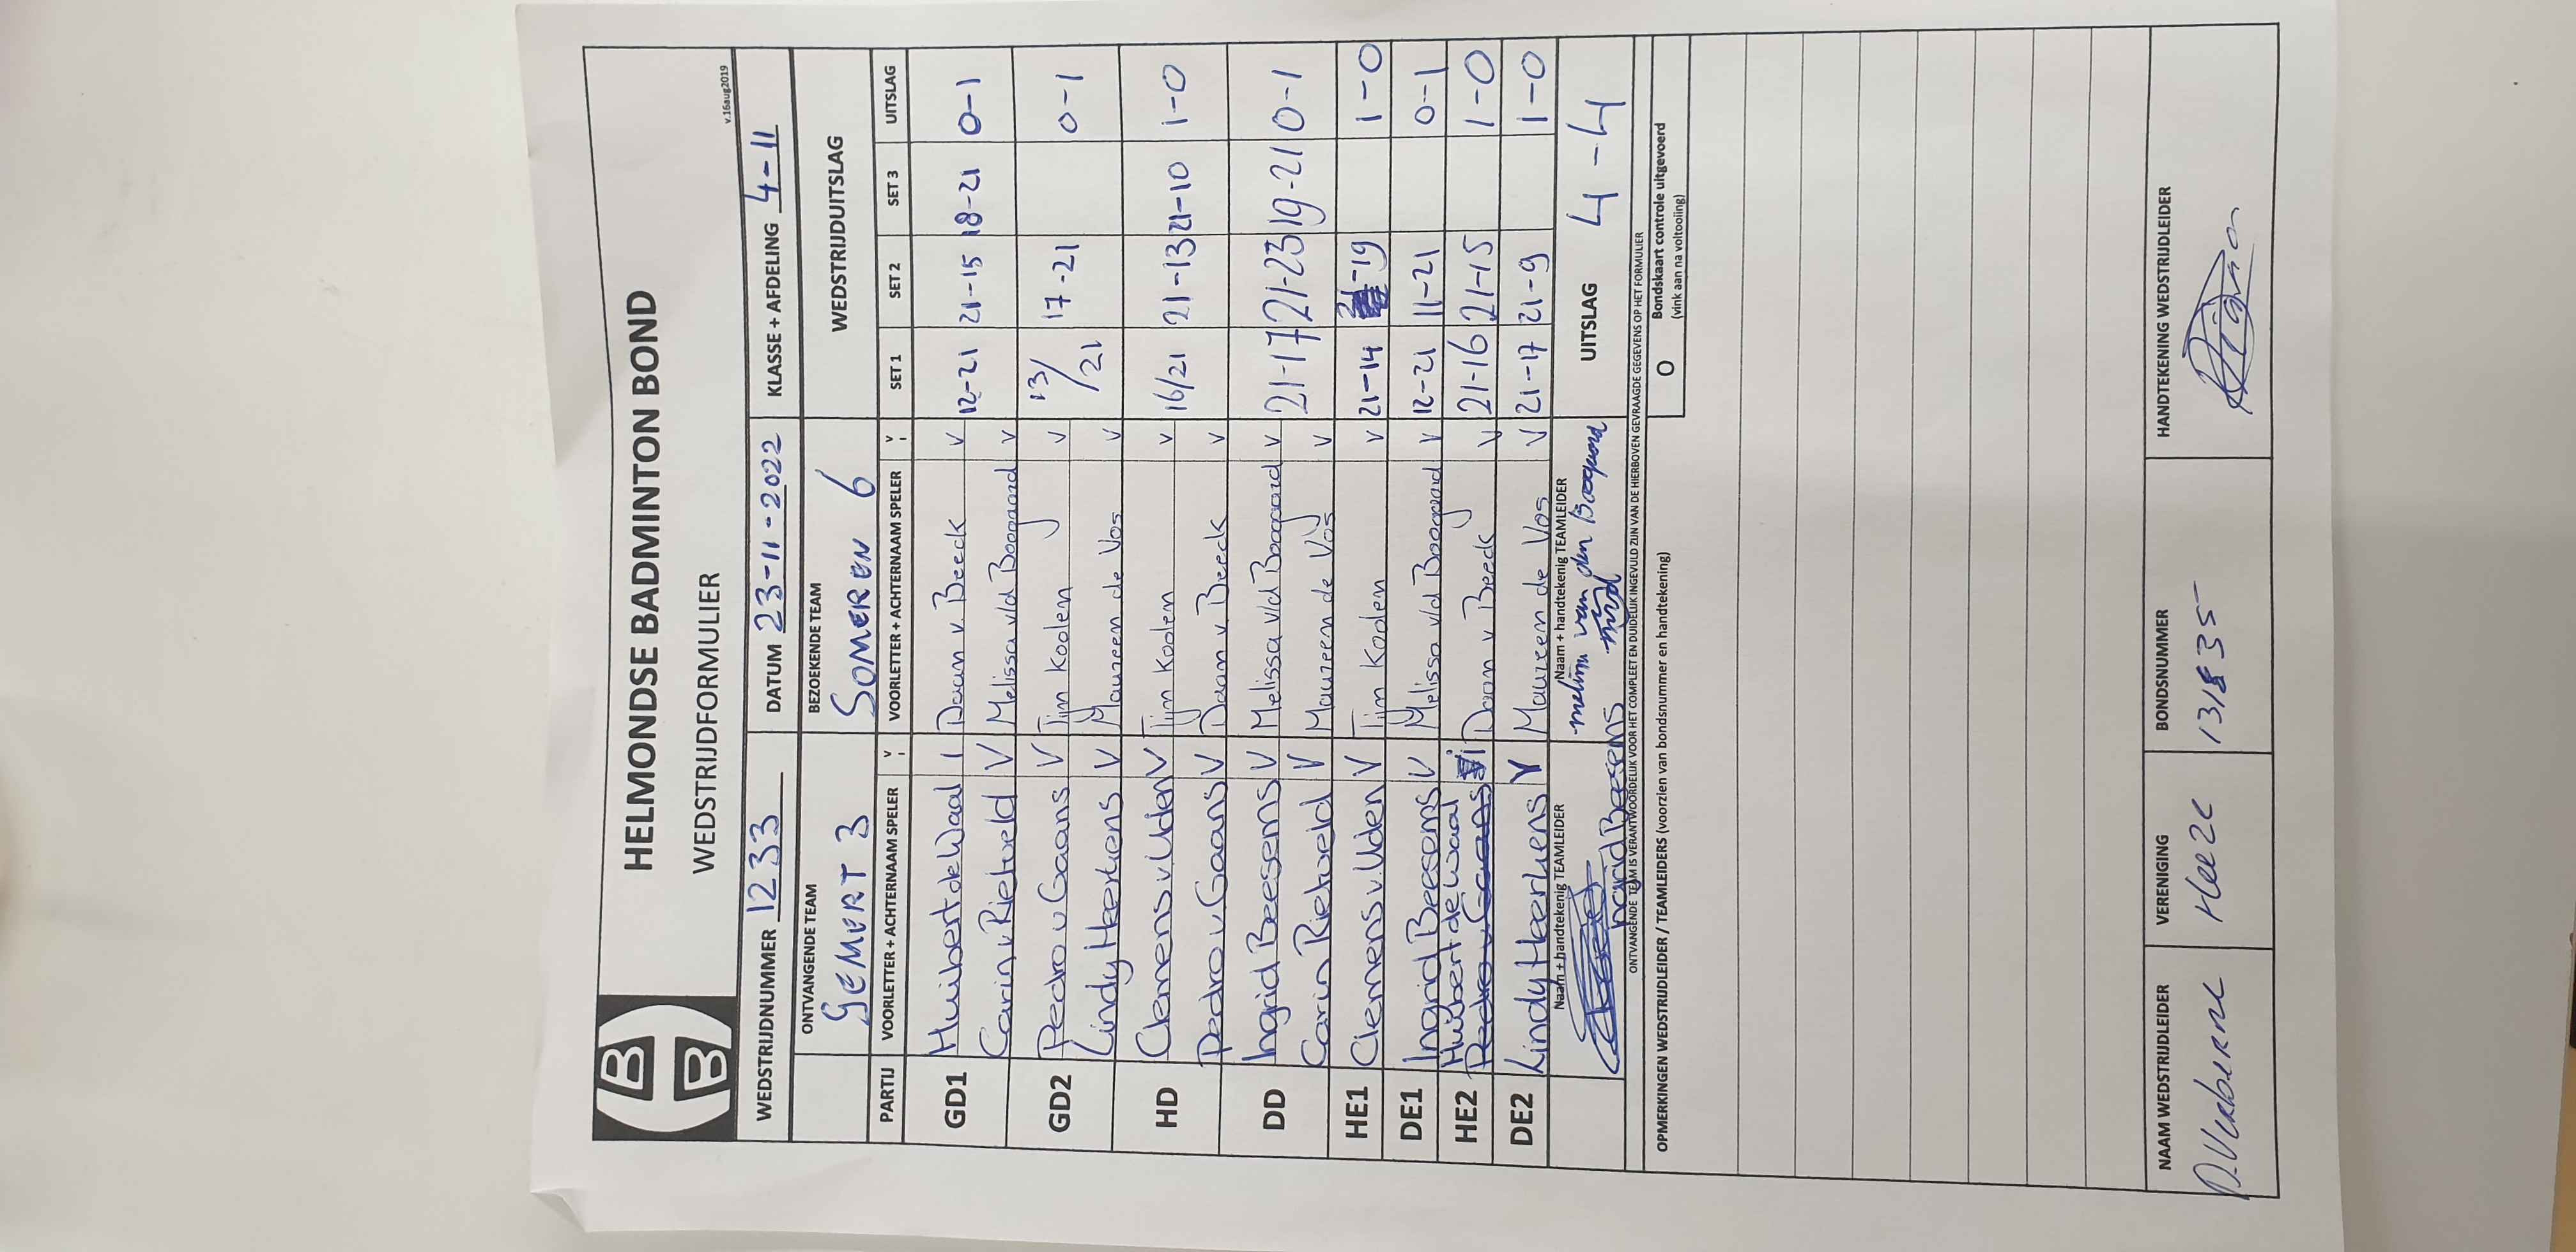 HELMONDSE BADMINTON BOND
WEDSTRIJDFORMULIER
v.16aug2019
WEDSTRIJDNUMMER 1233 DATUM 23-11-2022 KLASSE + AFDELING 4-11
ONTVANGENDE TEAM BEZOEKENDE TEAM WEDSTRIJDUITSLAG
GEMERT 3 SOMEREN 6
PARTIJ VOORLETTER + ACHTERNAAM SPELER V I VOORLETTER + ACHTERNAAM SPELER V I SET 1 SET 2 SET 3 UITSLAG
GD1 Huibert de Waal I Daan v. Beeck V 12-21 21-15 18-21 0-1
Carin v Rietveld V Melissa v/d Boogaard V
GD2 Pedro v Gaans V Tijn Koolen V 13/21 17-21 0-1
Lindy Heerkens V Maureen de Vos V
HD Clemens v Uden V Tijn Koolen V 16/21 21-13 21-10 1-0
Pedro v Gaans V Daan v Beeck V
DD Ingrid Beesems V Melissa v/d Boogaard V 21-17 21-23 19-21 0-1
Carin Rietveld V Maureen de Vos V
HE1 Clemens v. Uden V Tijn Koolen V 21-14 21-19 1-0
DE1 Ingrid Beesems V Melissa v/d Boogaard V 12-21 11-21 0-1
HE2 Huibert de Waal I Daan v Beeck V 21-16 21-15 1-0
Pedro v Gaans
DE2 Lindy Heerkens V Maureen de Vos V 21-17 21-9 1-0
Naam + handtekenig TEAMLEIDER Naam + handtekenig TEAMLEIDER UITSLAG 4-4
van den Boogaard
ONTVANGENDE TEAM IS VERANTWOORDELIJK VOOR HET COMPLEET EN DUIDELIJK INGEVULD ZIJN VAN DE HIERBOVEN GEVRAAGDE GEGEVENS OP HET FORMULIER
OPMERKINGEN WEDSTRIJDLEIDER / TEAMLEIDERS (voorzien van bondsnummer en handtekening)
O Bondskaart controle uitgevoerd
(vink aan na voltooling)
NAAM WEDSTRIJDLEIDER VERENIGING BONDSNUMMER HANDTEKENING WEDSTRIJDLEIDER
Heeze 131835